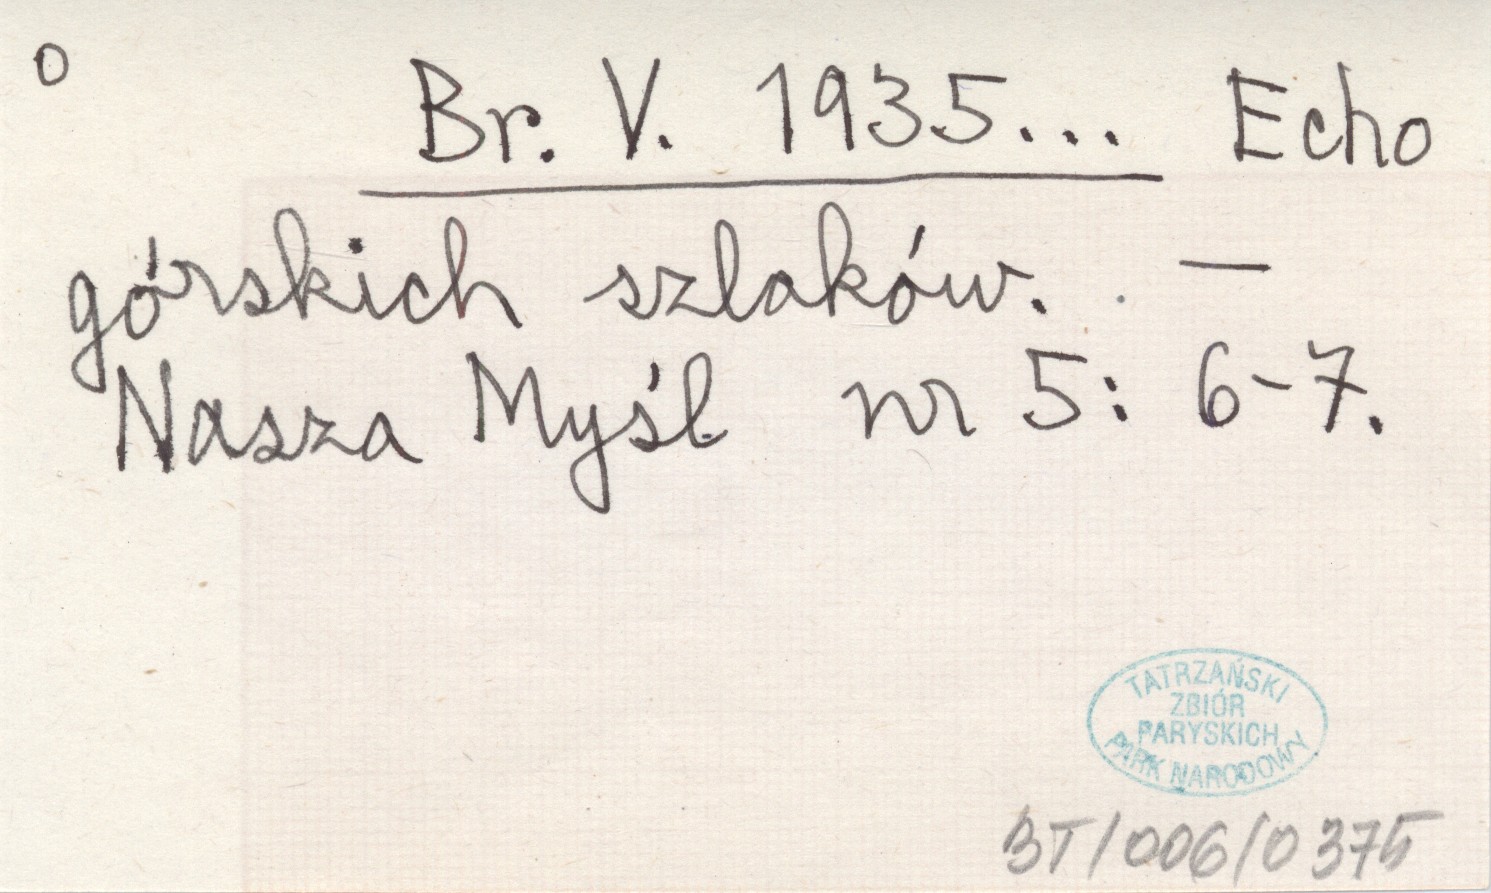 o
Br. V. 1935... Echo
górskich szlaków. —
Nasza Myśl nr 5: 6-7.
TATRZAŃSKI
ZBIÓR
PARYSKICH
PARK NARODOWY
BT/006/0375